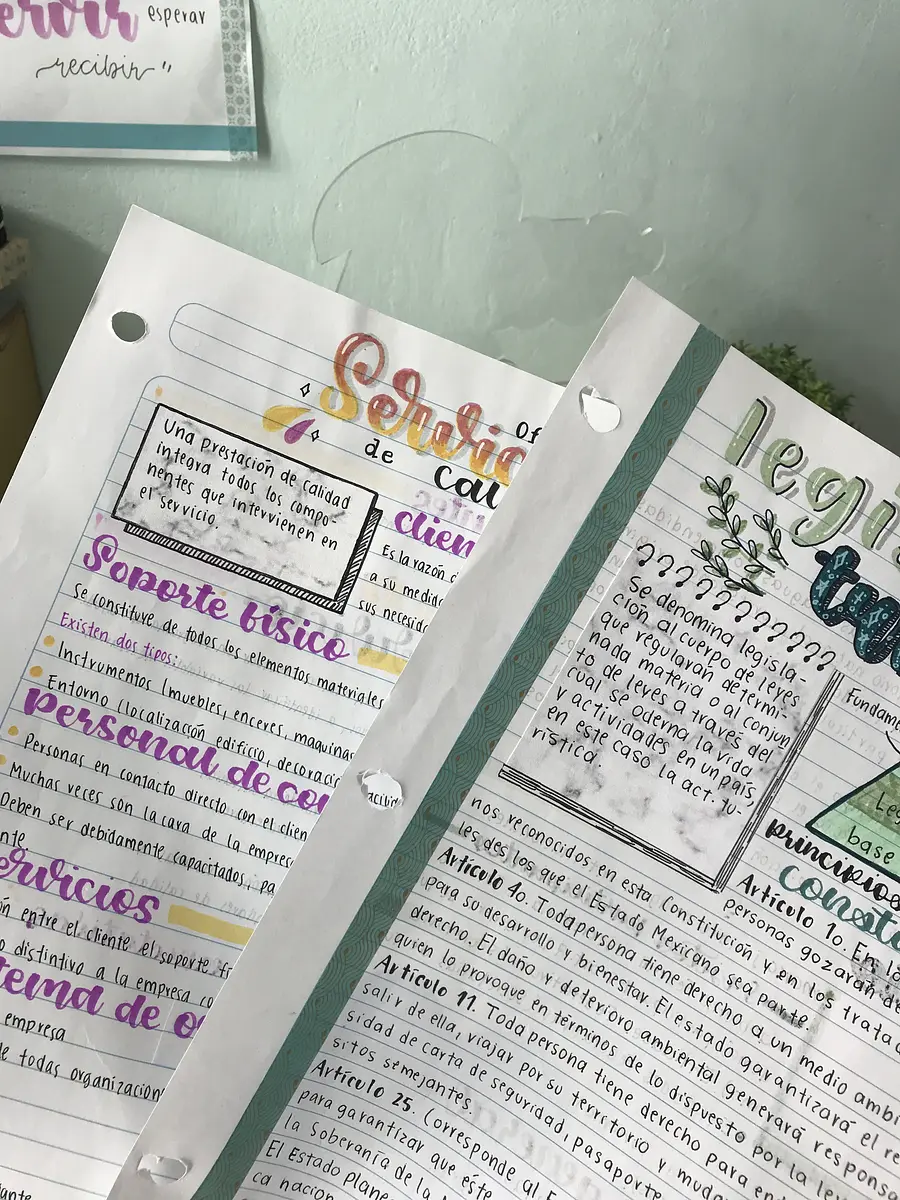 esperar
recibir"
Servic
de Cal
Una prestación de calidad
integra todos los compo-
nentes que intervienen en
el servicio.
clien
Es la razón d
a su medid
sus necesid
Soporte físico
Se constituye de todos los elementos materiales
Existen dos tipos:
Instrumentos (muebles, enceres, maquinas
Entorno (localización edificio, decoració
Personal de con
Personas en contacto directo con el clien
Muchas veces son la cara de la empres
Deben ser debidamente capacitados, pa
nte.
ervicios
ón entre el cliente el soporte fí
o distintivo a la empresa co
tema de o
empresa
de todas organizacion
legi
Se denomina legisla-
ción al cuerpo de leyes
que regularán determi-
nada materia o al conjun
to de leyes a traves del
cual se oderna la vida
y actividades en un país,
en este caso la act. tu-
rística.
Fundame
Leg
base
principios
const
Artículo 1o. En lo
personas gozarán de
nos reconocidos en esta Constitución y en los tratad
les des los que el Estado Mexicano sea parte.
Artículo 4o. Toda persona tiene derecho a un medio ambi
para su desarrollo y bienestar. El estado garantizará el re
derecho. El daño y deterioro ambiental generará responsa
quien lo provoque en términos de lo dispuesto por la le
Artículo 11. Toda persona tiene derecho para en
salir de ella, viajar por su territorio y muda
sidad de carta de seguridad, pasaporte
sitos semejantes.
Artículo 25. (Corresponde al E
para garantizar que éste
la Soberanía de la
El Estado plane
ca nacion